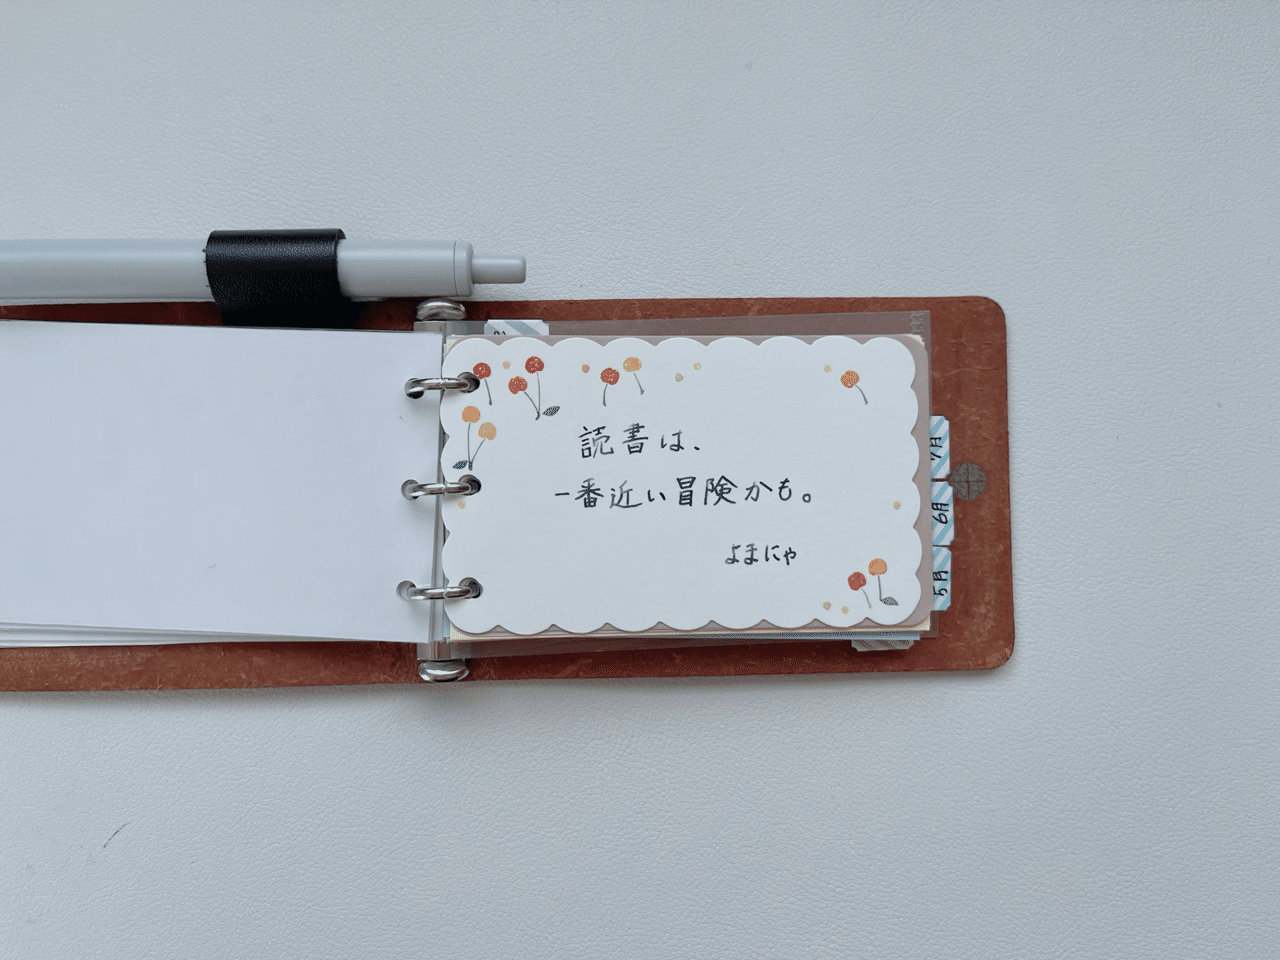 読書は、
一番近い冒険かも。
よまにゃ
7月
6月
5月